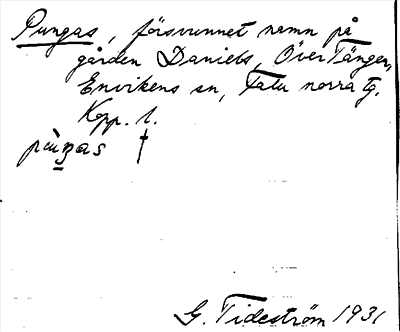 Pungas, försvunnet namn på
gården Daniels, Över Tängen,
Envikens sn, Falu norra tg.
Kopp. l.
pùŋas †
G. Tideström 1931